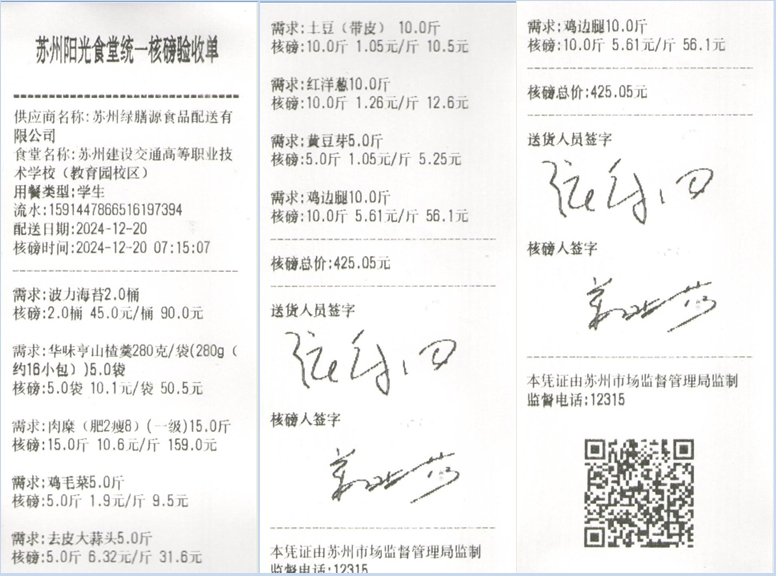 苏州阳光食堂统一核磅验收单
供应商名称:苏州绿膳源食品配送有
限公司
食堂名称:苏州建设交通高等职业技
术学校(教育园校区)
用餐类型:学生
流水:1591447866516197394
配送日期:2024-12-20
核磅时间:2024-12-20 07:15:07
需求:波力海苔2.0桶
核磅:2.0桶 45.0元/桶 90.0元
需求:华味亨山楂羹280克/袋(280g(
约16小包))5.0袋
核磅:5.0袋 10.1元/袋 50.5元
需求:肉糜(肥2瘦8)(一级)15.0斤
核磅:15.0斤 10.6元/斤 159.0元
需求:鸡毛菜5.0斤
核磅:5.0斤 1.9元/斤 9.5元
需求:去皮大蒜头5.0斤
核磅:5.0斤 6.32元/斤 31.6元
需求:土豆(带皮) 10.0斤
核磅:10.0斤 1.05元/斤 10.5元
需求:红洋葱10.0斤
核磅:10.0斤 1.26元/斤 12.6元
需求:黄豆芽5.0斤
核磅:5.0斤 1.05元/斤 5.25元
需求:鸡边腿10.0斤
核磅:10.0斤 5.61元/斤 56.1元
核磅总价:425.05元
送货人员签字
核磅人签字
本凭证由苏州市场监督管理局监制
监督电话:12315
需求:鸡边腿10.0斤
核磅:10.0斤 5.61元/斤 56.1元
核磅总价:425.05元
送货人员签字
核磅人签字
本凭证由苏州市场监督管理局监制
监督电话:12315